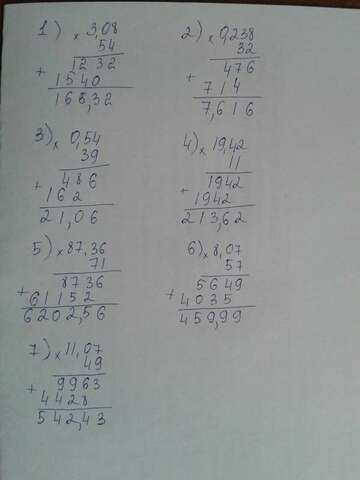 1) × 3,08
54
1232
+
1540
166,32
2) × 0,238
32
476
+
714
7,616
3) × 0,54
39
486
+
162
21,06
4) × 19,42
11
1942
+
1942
213,62
5) × 87,36
71
8736
+
61152
6202,56
6) × 8,07
57
5649
+
4035
459,99
7) × 11,07
49
9963
+
4428
542,43